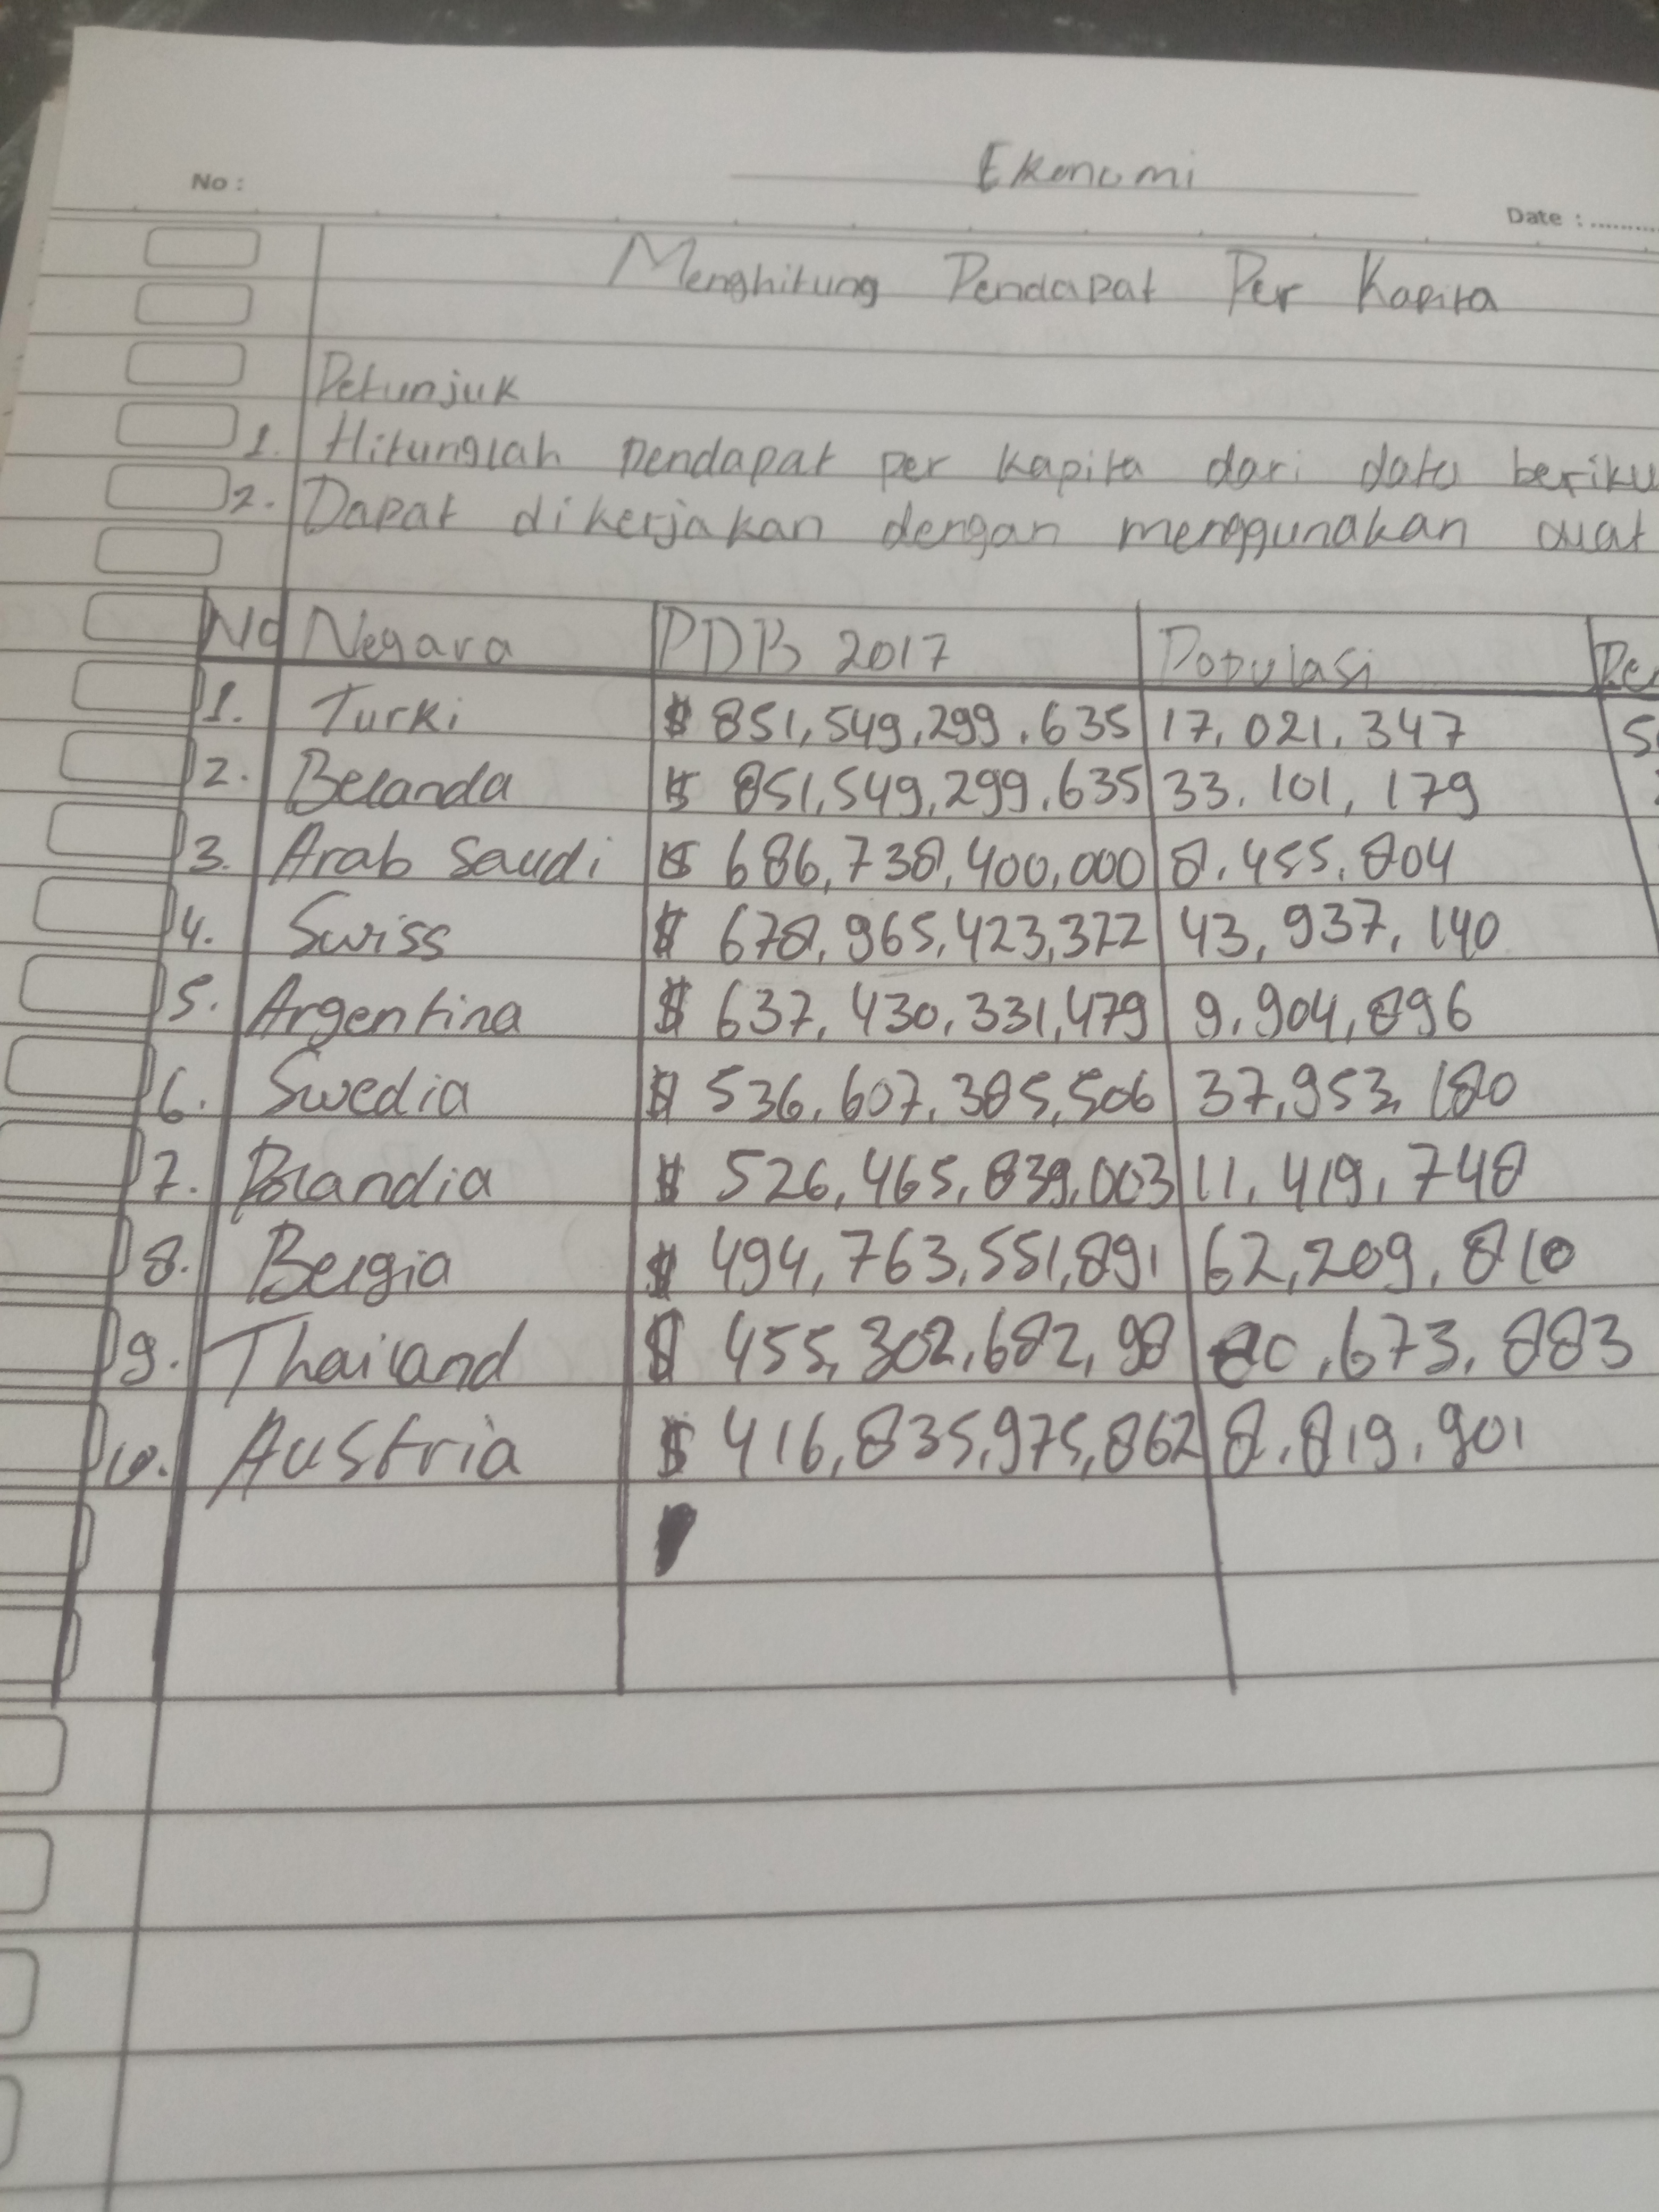 Ekonomi
No :
Date : ..........
Menghitung Pendapat Per Kapita
Petunjuk
1. Hitunglah Pendapat per kapita dari data beriku
2. Dapat dikerjakan dengan menggunakan alat
No Negara PDB 2017 Populasi Pe
1. Turki $ 851,549,299.635 17,021,347 5
2. Belanda $ 851,549,299.635 33.101,179
3. Arab Saudi $ 686,738,400,000 8.455.804
4. Swiss $ 678,965,423,322 43,937,140
5. Argentina $ 637,430,331,479 9.904,896
6. Swedia $ 536,607,385,506 37,953,180
7. Polandia $ 526,465,839,003 11,419,748
8. Belgia $ 494,763,551,891 62,209,810
9. Thailand $ 455,302,682,98 80,673,883
10. Austria $ 416,835,975,862 8,819,901